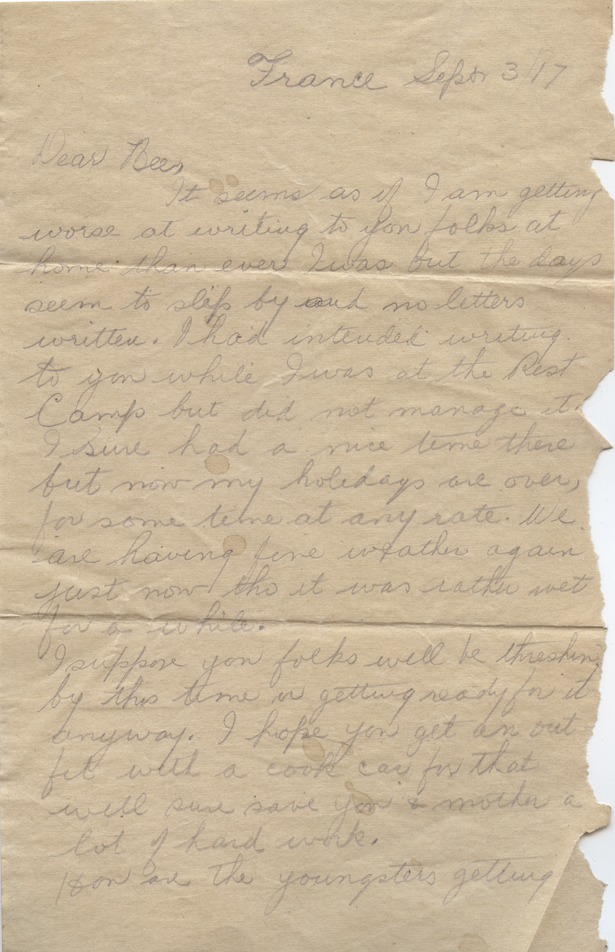 France Sept 3/17
Dear Bee,
It seems as if I am getting
worse at writing to you folks at
home than ever I was but the days
seem to slip by and no letters
written. I had intended writing
to you while I was at the Rest
Camp but did not manage it.
I sure had a nice time there
but now my holidays are over,
for some time at any rate. We
are having fine weather again
just now tho it was rather wet
for a while.
I suppose you folks will be threshing
by this time or getting ready for it
anyway. I hope you get an out
fit with a cook car for that
will sure save you & mother a
lot of hard work.
How are the youngsters getting